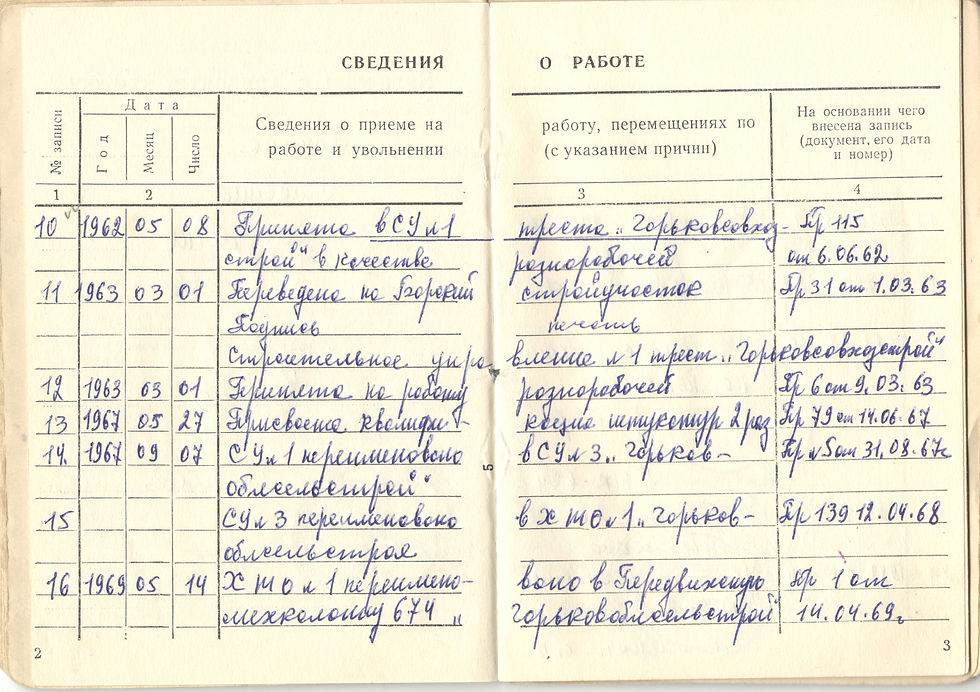 СВЕДЕНИЯ О РАБОТЕ
№ записи
Дата
Год
Месяц
Число
Сведения о приеме на работу, перемещениях по
работе и увольнении (с указанием причин)
На основании чего
внесена запись
(документ, его дата
и номер)
1 2 3 4
10 1962 05 08 Принята в СУ №1 треста „Горьковсовхоз- Пр 115
строй" в качестве разнорабочей от 6.06.62
11 1963 03 01 Переведена на Борский стройучасток Пр 31 от 1.03.63
Подпись печать
Строительное управление №1 трест „Горьковсовхозстрой"
12 1963 03 01 Принята на работу разнорабочей Пр 6 от 9.03.63
13 1967 05 27 Присвоена квалифи- кация штукатур 2 раз Пр 79 от 14.06.67
14. 1967 09 07 СУ №1 переименовано в СУ №3 „Горьков- Пр №5 от 31.08.67г
облсельстрой"
15 СУ №3 переименовано в ХТО №1 „Горьков- Пр 139 12.04.68
облсельстроя
16 1969 05 14 ХТО №1 переимено- вано в Передвижную пр 1 от
мехколонну 674 „Горьковоблсельстрой" 14.04.69г
5
2 3